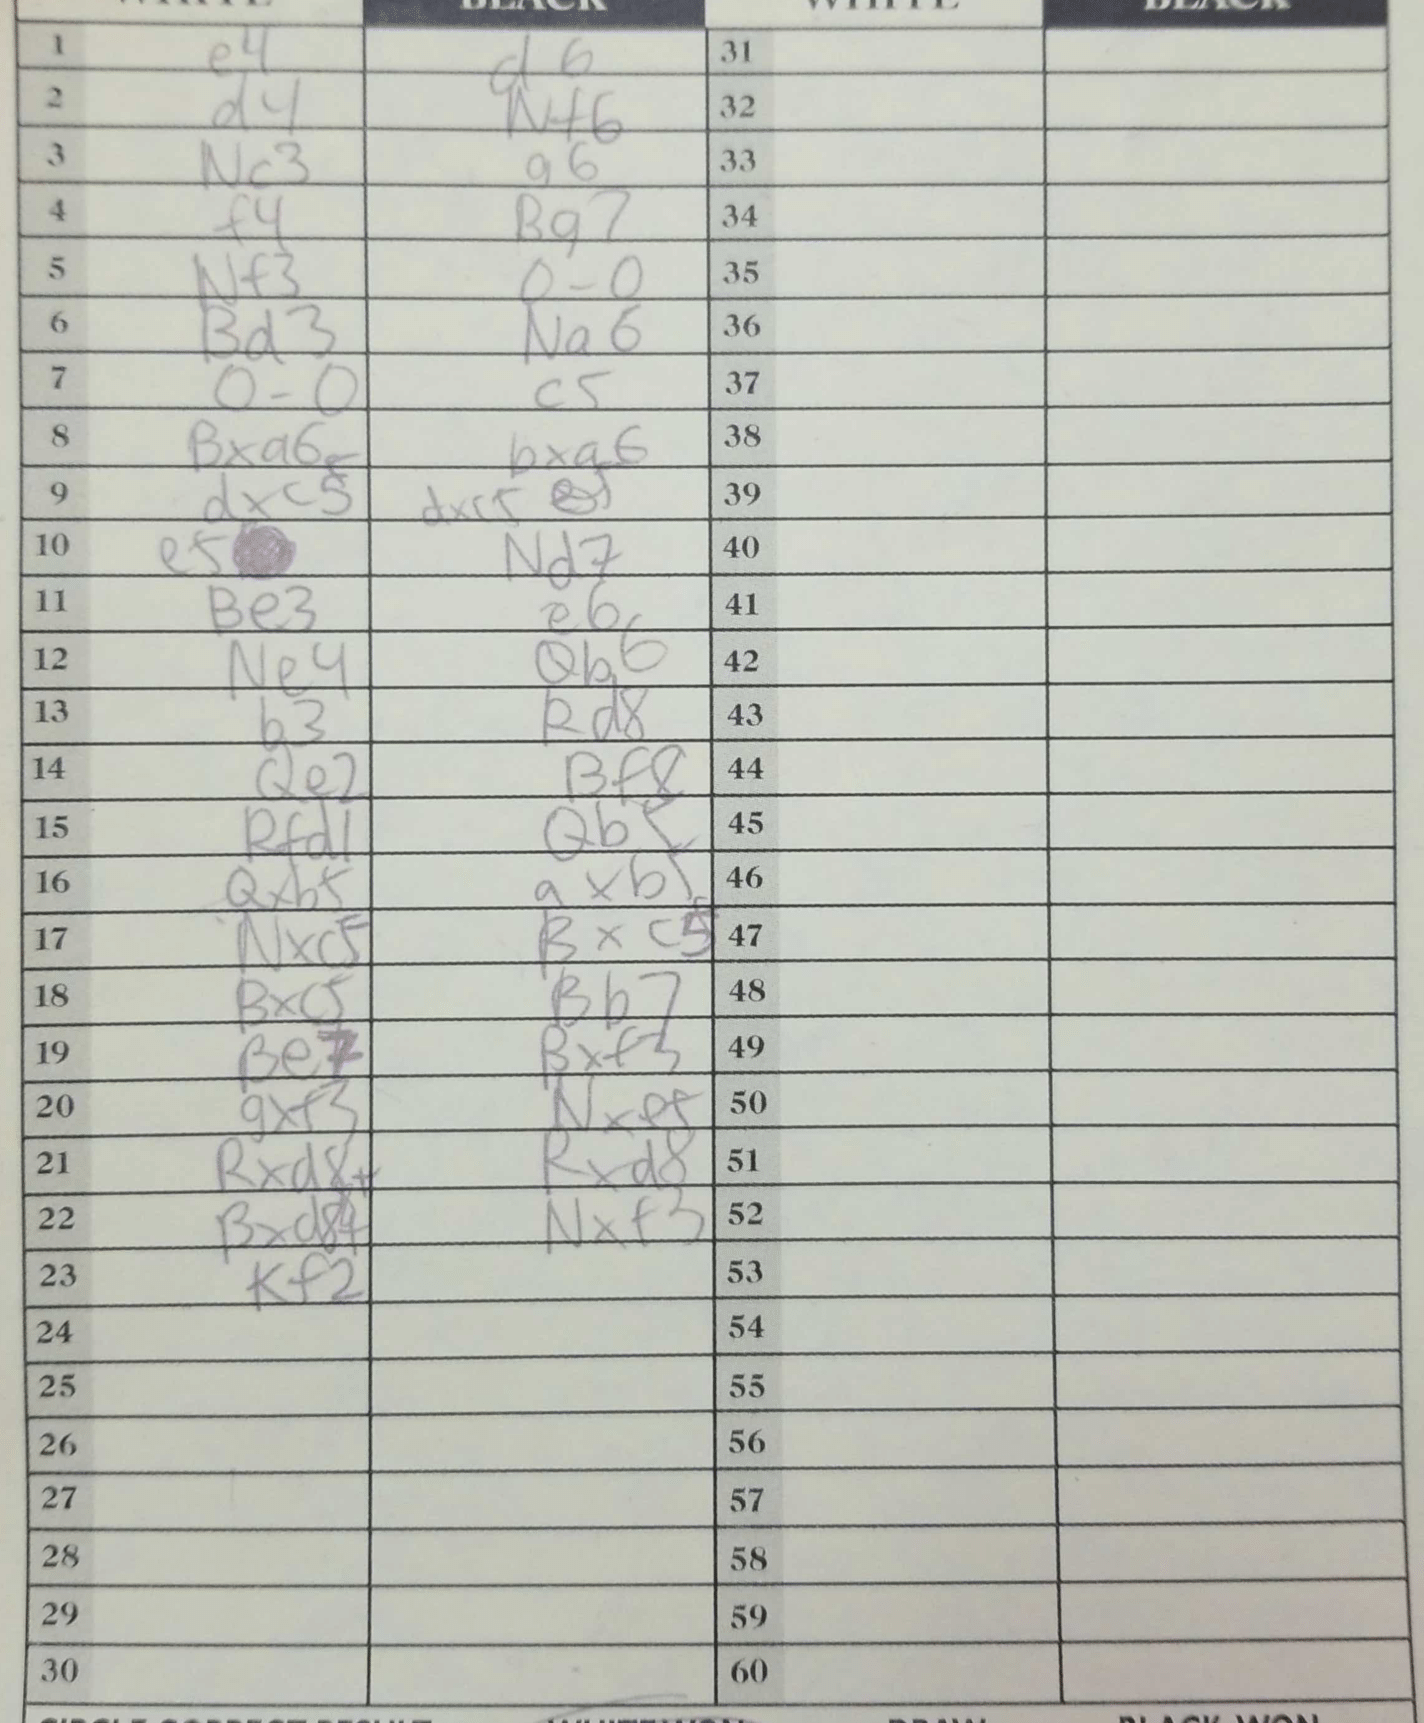 WHITE BLACK WHITE BLACK
1 e4 d6 31
2 d4 Nf6 32
3 Nc3 g6 33
4 f4 Bg7 34
5 Nf3 0-0 35
6 Bd3 Na6 36
7 0-0 c5 37
8 Bxa6 bxa6 38
9 dxc5 dxc5 39
10 e5 Nd7 40
11 Be3 e6 41
12 Ne4 Qb6 42
13 b3 Rd8 43
14 Qe2 Bf8 44
15 Rfd1 Qb5 45
16 Qxb5 axb5 46
17 Nxc5 Bxc5 47
18 Bxc5 Bb7 48
19 Be7 Bxf3 49
20 gxf3 Nxe5 50
21 Rxd8+ Rxd8 51
22 Bxd8+ Nxf3 52
23 Kf2 53
24 54
25 55
26 56
27 57
28 58
29 59
30 60
CIRCLE CORRECT RESULT WHITE WON DRAW BLACK WON